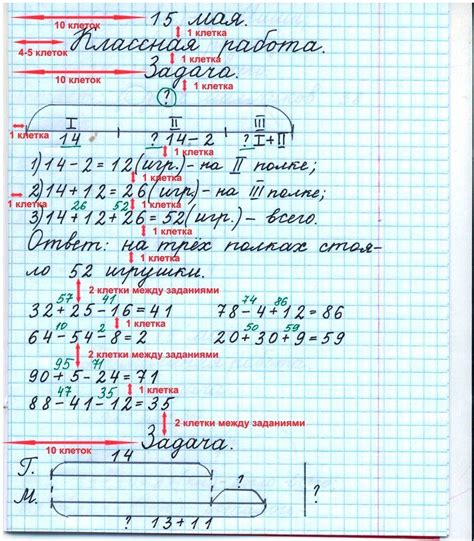 10 клеток 15 мая.
1 клетка
4-5 клеток Классная работа.
1 клетка
10 клеток Задача.
? 1 клетка
1 клетка I II III
14 ? 14-2 ? I+II
1 клетка
1) 14-2=12 (игр.) - на II полке;
1 клетка
2) 14+12=26 (игр.) - на III полке;
1 клетка 26 52 1 клетка
3) 14+12+26=52 (игр.) - всего.
1 клетка
Ответ: на трёх полках стоя-
1 клетка
ло 52 игрушки.
2 клетки между заданиями
57 41 74 86
32+25-16=41 78-4+12=86
10 2 1 клетка 50 59
64-54-8=2 20+30+9=59
2 клетки между заданиями
95 71
90+5-24=71
47 35 1 клетка
88-41-12=35
2 клетки между заданиями
10 клеток Задача.
14
Г.
? ?
М.
? 13+11